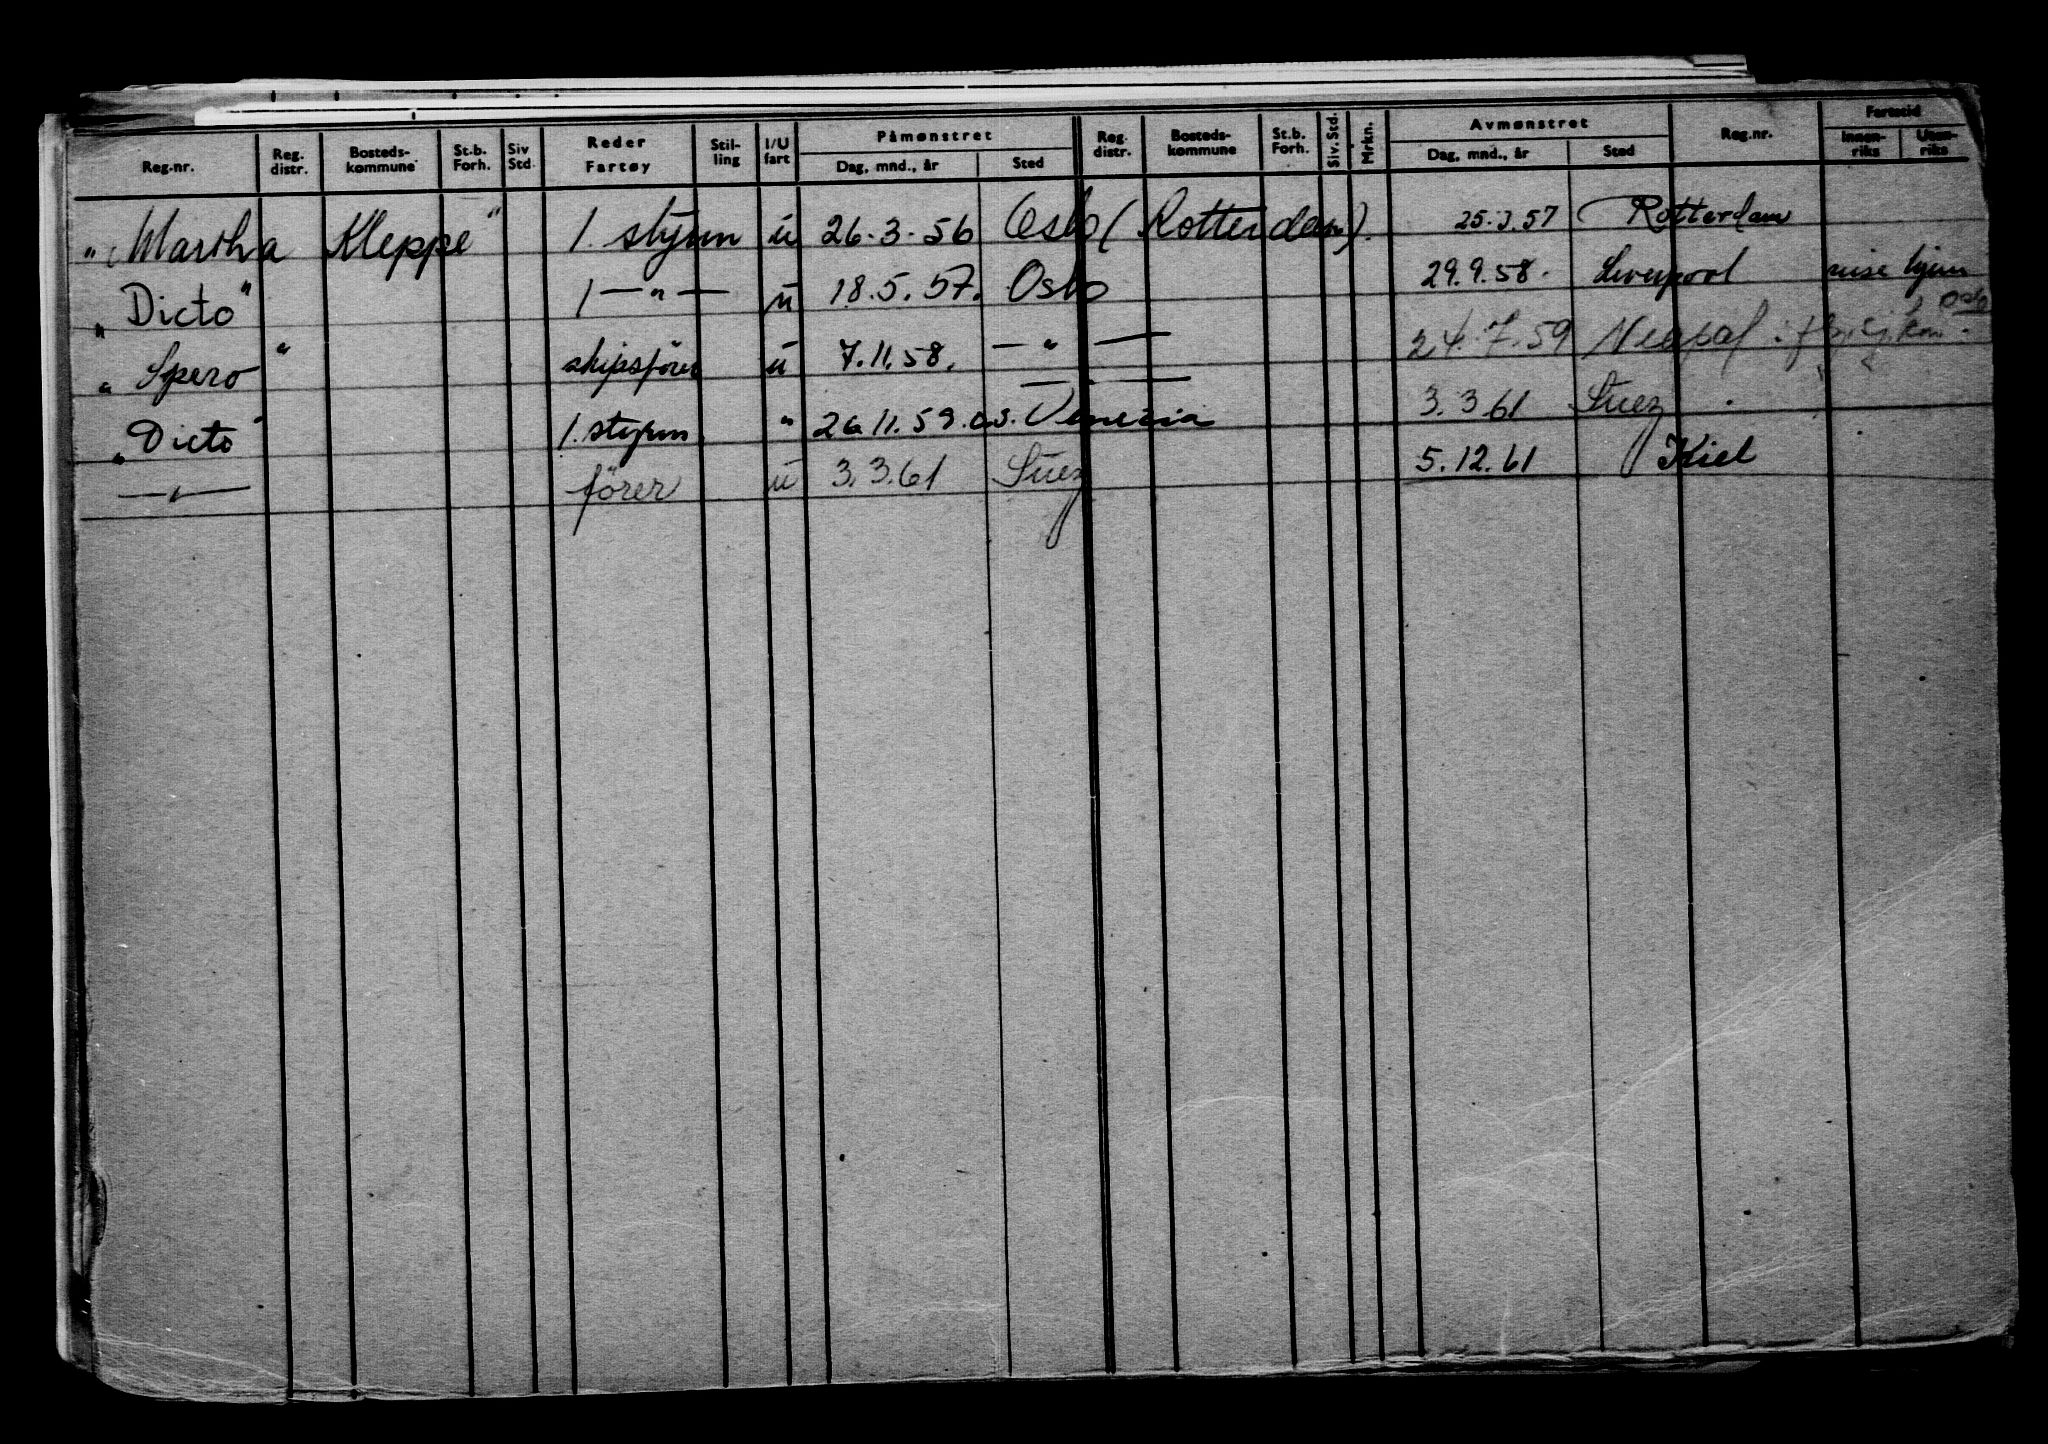 Reg.nr. Reg. distr. Bosteds-kommune St.b. Forh. Siv Std. Reder Fartøy Stil-ling I/U fart Påmønstret Dag, mnd., år Sted Reg. distr. Bosteds-kommune St.b. Forh. Siv. Std. Mrkn. Avmønstret Dag, mnd., år Sted Reg.nr. Fartstid Innen-riks Uten-riks
"Martha Kleppe" 1. styrm u 26.3.56 Oslo (Rotterdam). 25.3.57 Rotterdam
"Dicto" 1 — " — u 18.5.57. Oslo 29.9.58. Liverpool reise hjem
"Spero" skipsfører u 7.11.58. — " — 24.7.59 Neapel Oslo
"Dicto" 1. styrm " 26.11.59. Venezia 3.3.61 Suez
— " — fører u 3.3.61 Suez 5.12.61 Kiel